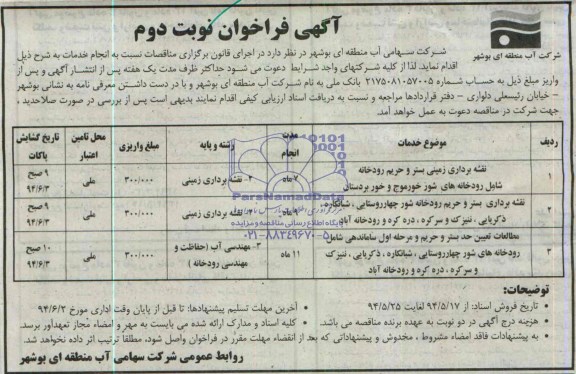 آگهی فراخوان نوبت دوم
شرکت آب منطقه ای بوشهر
شرکت سهامی آب منطقه ای بوشهر در نظر دارد در اجرای قانون برگزاری مناقصات نسبت به انجام خدمات به شرح ذیل
اقدام نماید. لذا از کلیه شرکتهای واجد شرایط دعوت می شود حداکثر ظرف مدت یک هفته پس از انتشار آگهی و پس از
واریز مبلغ ذیل به حساب شماره ۲۱۷۵۰۸۱۰۵۷۰۰۵ بانک ملی به نام شرکت آب منطقه ای بوشهر و با در دست داشتن معرفی نامه به نشانی بوشهر
- خیابان رئیسعلی دلواری - دفتر قراردادها مراجعه و نسبت به دریافت اسناد ارزیابی کیفی اقدام نمایند بدیهی است پس از بررسی در صورت صلاحدید ،
جهت شرکت در مناقصه دعوت به عمل خواهد آمد.
ردیف موضوع خدمات مدت انجام رشته و پایه مبلغ واریزی محل تامین اعتبار تاریخ گشایش پاکات
۱ نقشه برداری زمینی بستر و حریم رودخانه شامل رودخانه های شور خورموج و خور بردستان ۷ ماه ۲- نقشه برداری زمینی ۳۰۰/۰۰۰ ملی ۹ صبح ۹۴/۶/۳
۲ نقشه برداری بستر و حریم رودخانه شور چهارروستایی، شبانکاره، ذکریایی ، تنیزک و سرکره ، دره کره و رودخانه آباد ماه نقشه برداری زمینی ۳۰۰/۰۰۰ ملی ۹ صبح ۹۴/۶/۳
۳ مطالعات تعیین حد بستر و حریم و مرحله اول ساماندهی شامل رودخانه های شور چهارروستایی ، شبانکاره ، ذکریایی ، تنیزک و سرکره ، دره کره و رودخانه آباد ۱۱ ماه ۳- مهندسی آب (حفاظت و مهندسی رودخانه ) ۳۰۰/۰۰۰ ملی ۱۰ صبح ۹۴/۶/۳
ParsNamadData
پایگاه اطلاع رسانی مناقصه و مزایده
۰۲۱-۸۸۳۴۹۶۷۰-۵
توضیحات:
• تاریخ فروش اسناد: از ۹۴/۵/۱۷ لغایت ۹۴/۵/۲۵
• آخرین مهلت تسلیم پیشنهادها: تا قبل از پایان وقت اداری مورخ ۹۴/۶/۲
• هزینه درج آگهی در دو نوبت به عهده برنده مناقصه می باشد.
• کلیه اسناد و مدارک ارائه شده می بایست به مهر و امضاء مجاز تعهدآور برسد.
• به پیشنهادات فاقد امضاء مشروط ، مخدوش و پیشنهاداتی که بعد از انقضاء مهلت مقرر در فراخوان واصل شود، مطلقا ترتیب اثر داده نخواهد شد.
روابط عمومی شرکت سهامی آب منطقه ای بوشهر